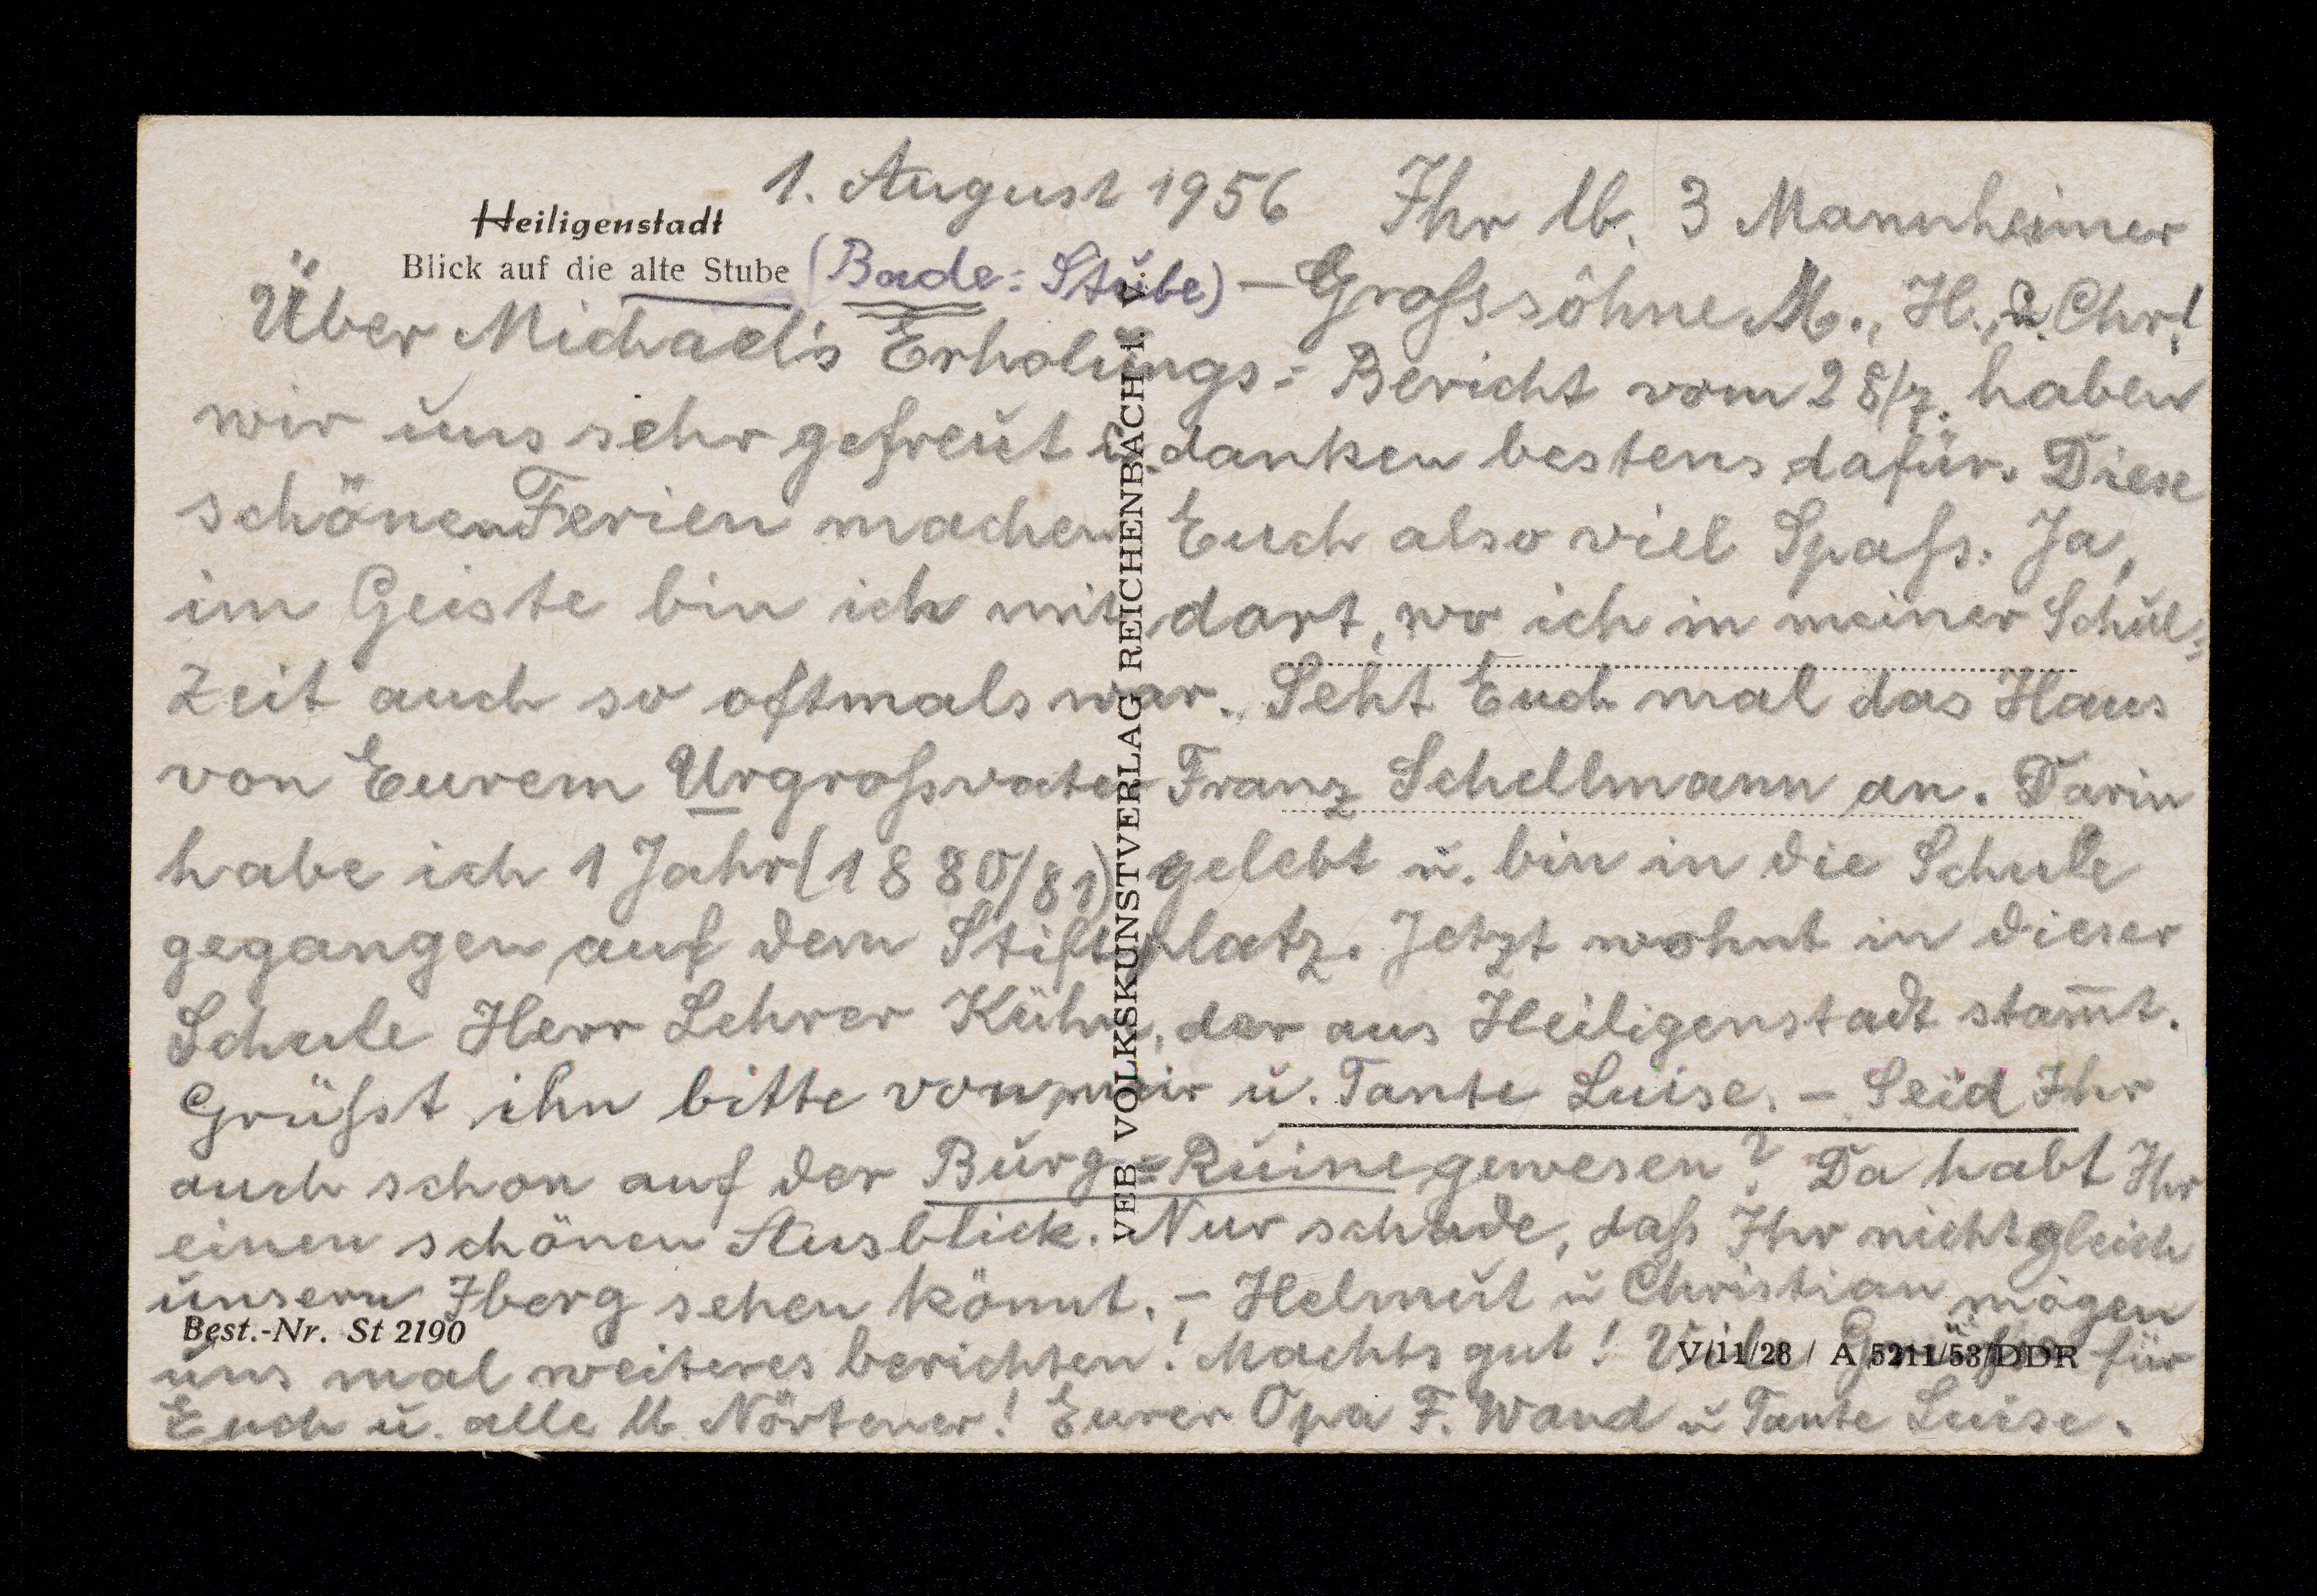 1. August 1956 Ihr lb. 3 Mannheimer
Heiligenstadt
Blick auf die alte Stube (Bade=Stube) – Grosssöhne M., H., u. Chr.!
Über Michael's Erholungs=Bericht vom 28/7. haben
wir uns sehr gefreut u. danken bestens dafür. Diese
schönen Ferien machen Euch also viel Spaß. Ja,
im Geiste bin ich mit dort, wo ich in meiner Schul=
zeit auch so oftmals war. Seht Euch mal das Haus
von Eurem Urgroßvater Franz Schellmann an. Darin
habe ich 1 Jahr (1880/81) gelebt u. bin in die Schule
gegangen auf dem Stiftplatz. Jetzt wohnt in dieser
Schule Herr Lehrer Kühn, der aus Heiligenstadt stam̅t.
Grüßt ihn bitte von mir u. Tante Luise. – Seid Ihr
auch schon auf der Burg=Ruine gewesen? Da habt Ihr
einen schönen Ausblick. Nur schade, daß Ihr nicht gleich
unsern Iberg sehen könnt. – Helmut u Christian mögen
uns mal weiteres berichten! Machts gut! Viele Grüße für
Euch u. alle lb Nörtener! Eurer Opa F. Wand u Tante Luise.
VEB VOLKSKUNSTVERLAG REICHENBACH i. V.
Best.-Nr. St 2190
V/11/28 / A 5211/53/DDR